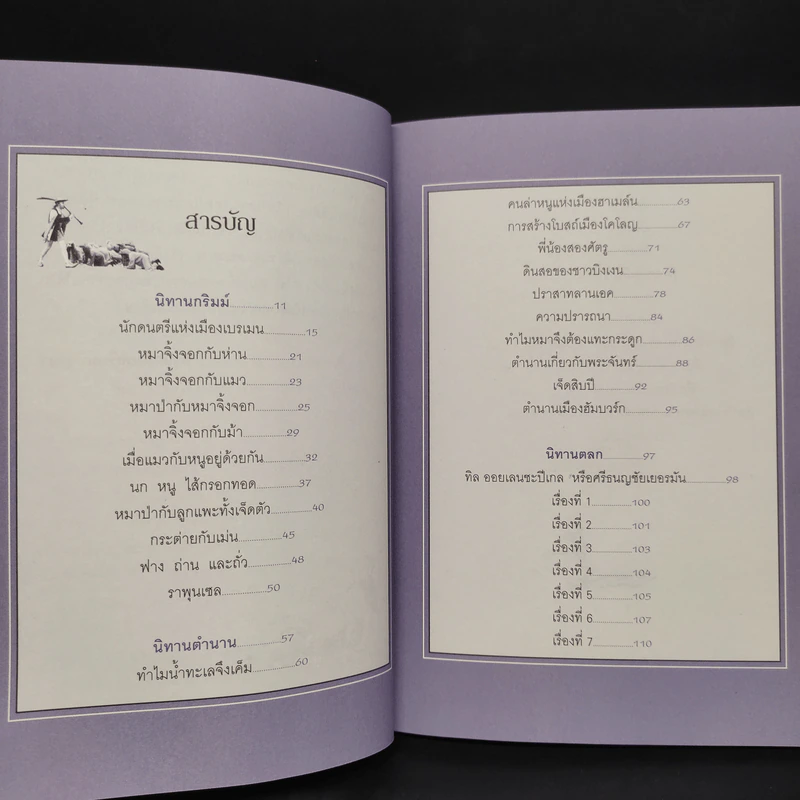 สารบัญ
นิทานกริมม์..................11
นักดนตรีแห่งเมืองเบรเมน..................15
หมาจิ้งจอกกับห่าน..................21
หมาจิ้งจอกกับแมว..................23
หมาป่ากับหมาจิ้งจอก..................25
หมาจิ้งจอกกับม้า..................29
เมื่อแมวกับหนูอยู่ด้วยกัน..................32
นก หนู ไส้กรอกทอด..................37
หมาป่ากับลูกแพะทั้งเจ็ดตัว..................40
กระต่ายกับเม่น..................45
ฟาง ถ่าน และถั่ว..................48
ราพุนเซล..................50
นิทานตำนาน..................57
ทำไมน้ำทะเลจึงเค็ม..................60
คนล่าหนูแห่งเมืองฮาเมล์น..................63
การสร้างโบสถ์เมืองโคโลญ..................67
พี่น้องสองศัตรู..................71
ดินสอของชาวบิงเงน..................74
ปราสาทลานเอค..................78
ความปรารถนา..................84
ทำไมหมาจึงต้องแทะกระดูก..................86
ตำนานเกี่ยวกับพระจันทร์..................88
เจ็ดสิบปี..................92
ตำนานเมืองฮัมบวร์ก..................95
นิทานตลก..................97
ทิล ออยเลนชะปีเกล หรือศรีธนญชัยเยอรมัน..................98
เรื่องที่ 1..................100
เรื่องที่ 2..................101
เรื่องที่ 3..................103
เรื่องที่ 4..................104
เรื่องที่ 5..................105
เรื่องที่ 6..................107
เรื่องที่ 7..................110